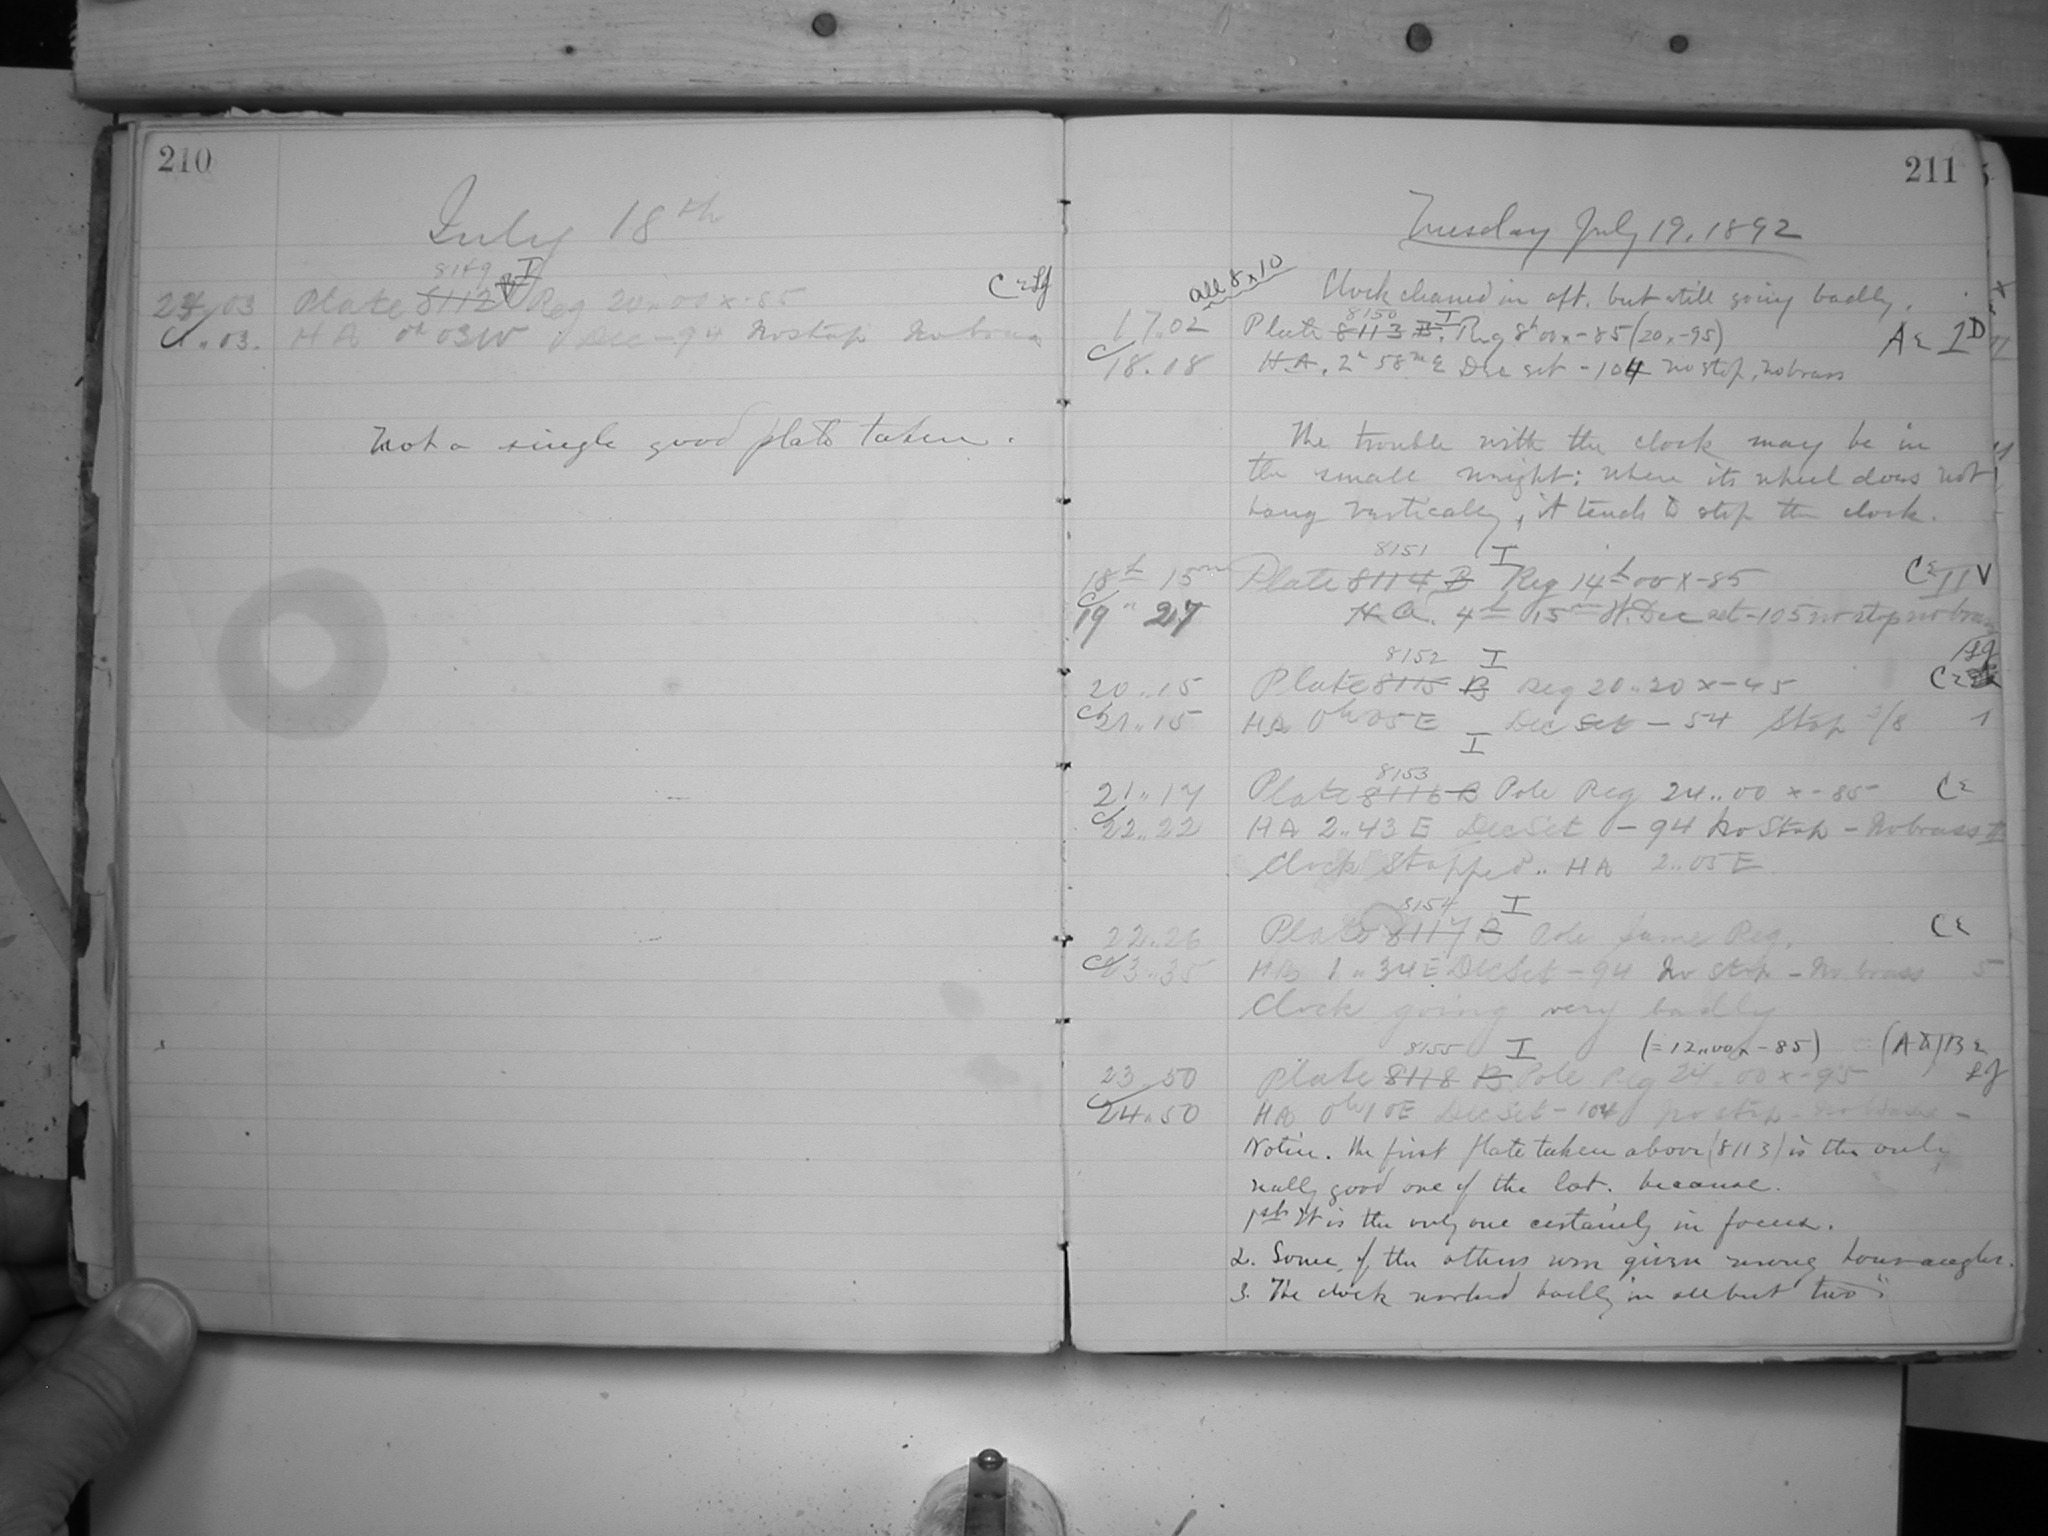 210
July 18th
8149 I
24..03 Plate 8112 B Reg 20..00 x -85
1..03. HA 0h 03W Dec -94 No stop No brass
Not a single good plate taken.
211
Tuesday July 19, 1892
all 8x10
Clock cleaned in aft. but still going badly.
8150 I
17.02 Plate 8113 B. Reg 8h 00 x -85 (20 x -95)
18.08 H.A. 2h 58m E Dec set -104 no stop, no brass
The trouble with the clock may be in
the small weight: when its wheel does not
hang vertically, it tends to stop the clock.
8151 I
18h 15m Plate 8114 B Reg 14h 00 x -85
19 " 27 H.A. 4h 15m W. Dec set -105 no stop no brass
8152 I
20..15 Plate 8115 B Reg 20..20 x -45
21..15 HA 0h 05 E Dec Set - 54 Stop 3/8 1
I
8153
21..17 Plate 8116 B Pole Reg 24..00 x -85
22..22 HA 2..43 E Dec Set -94 No Stop - No brass
Clock Stopped.. HA 2..05 E
8154 I
22..26 Plate 8117 B Pole same Reg.
23..35 HA 1..34 E Dec Set -94 No stop - No brass 5
Clock going very badly
8155 I (= 12..00 x -85)
23..50 Plate 8118 B Pole Reg 24..00 x -95
24..50 HA 0h 10E Dec Set -104 No stop - No brass -
Notice. The first plate taken above (8113) is the only
really good one of the lot. because.
1st It is the only one certainly in focus.
2. Some of the others were given wrong hour angles.
3. The clock worked badly in all but two